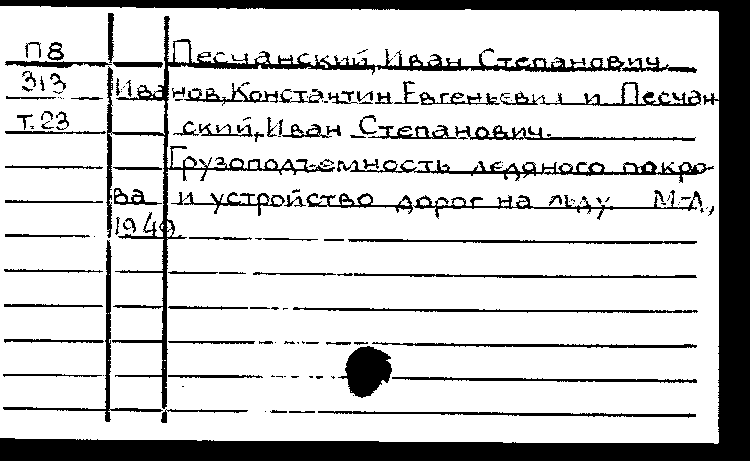 П8 Песчанский, Иван Степанович.
313 Иванов, Константин Евгеньевич и Песчан-
т.23 ский, Иван Степанович.
Грузоподъемность ледяного покро-
ва и устройство дорог на льду. М-Л.,
1949.